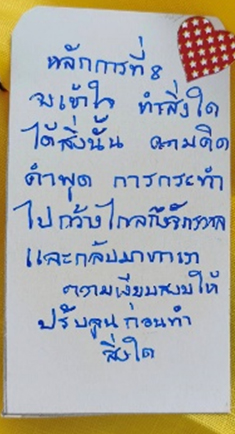 หลักการที่ 8
จงเข้าใจ ทำสิ่งใด
ได้สิ่งนั้น ความคิด
คำพูด การกระทำ
ไปกว้างไกลถึงจักรวาล
และกลับมาหาเรา
ความเงียบสงบให้
ปรับจูนก่อนทำ
สิ่งใด